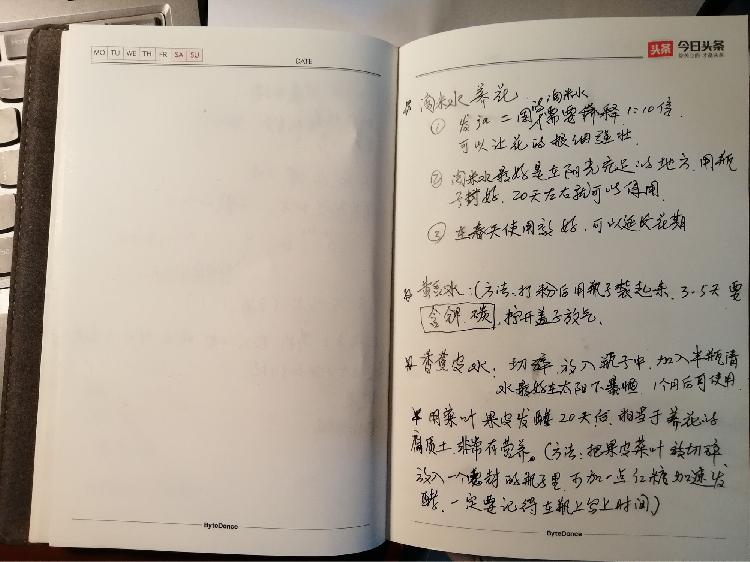 MO TU WE TH FR SA SU
DATE
ByteDance
头条 今日头条
你关心的 才是头条
淘米水养花
① 发酵二周的淘米水才需要稀释1:10倍.
可以让花的根细强壮.
② 淘米水最好是在阳光充足的地方.用瓶
子封好.20天左右就可以使用.
③ 在春天使用最好.可以延长花期
黄豆水:(方法:打粉后用瓶子装起来.3-5天要
含钾.磷 拧开盖子放气.
香蕉皮水:切碎放入瓶子中.加入半瓶清
水最好在太阳下暴晒 1个月后可使用.
用菜叶果皮发酵20天后.相当于养花的
腐质土.非常有营养。(方法:把果皮菜叶 切碎
放入一个密封的瓶子里.可加一点红糖加速发
酵.一定要记得在瓶上写上时间.)
ByteDance